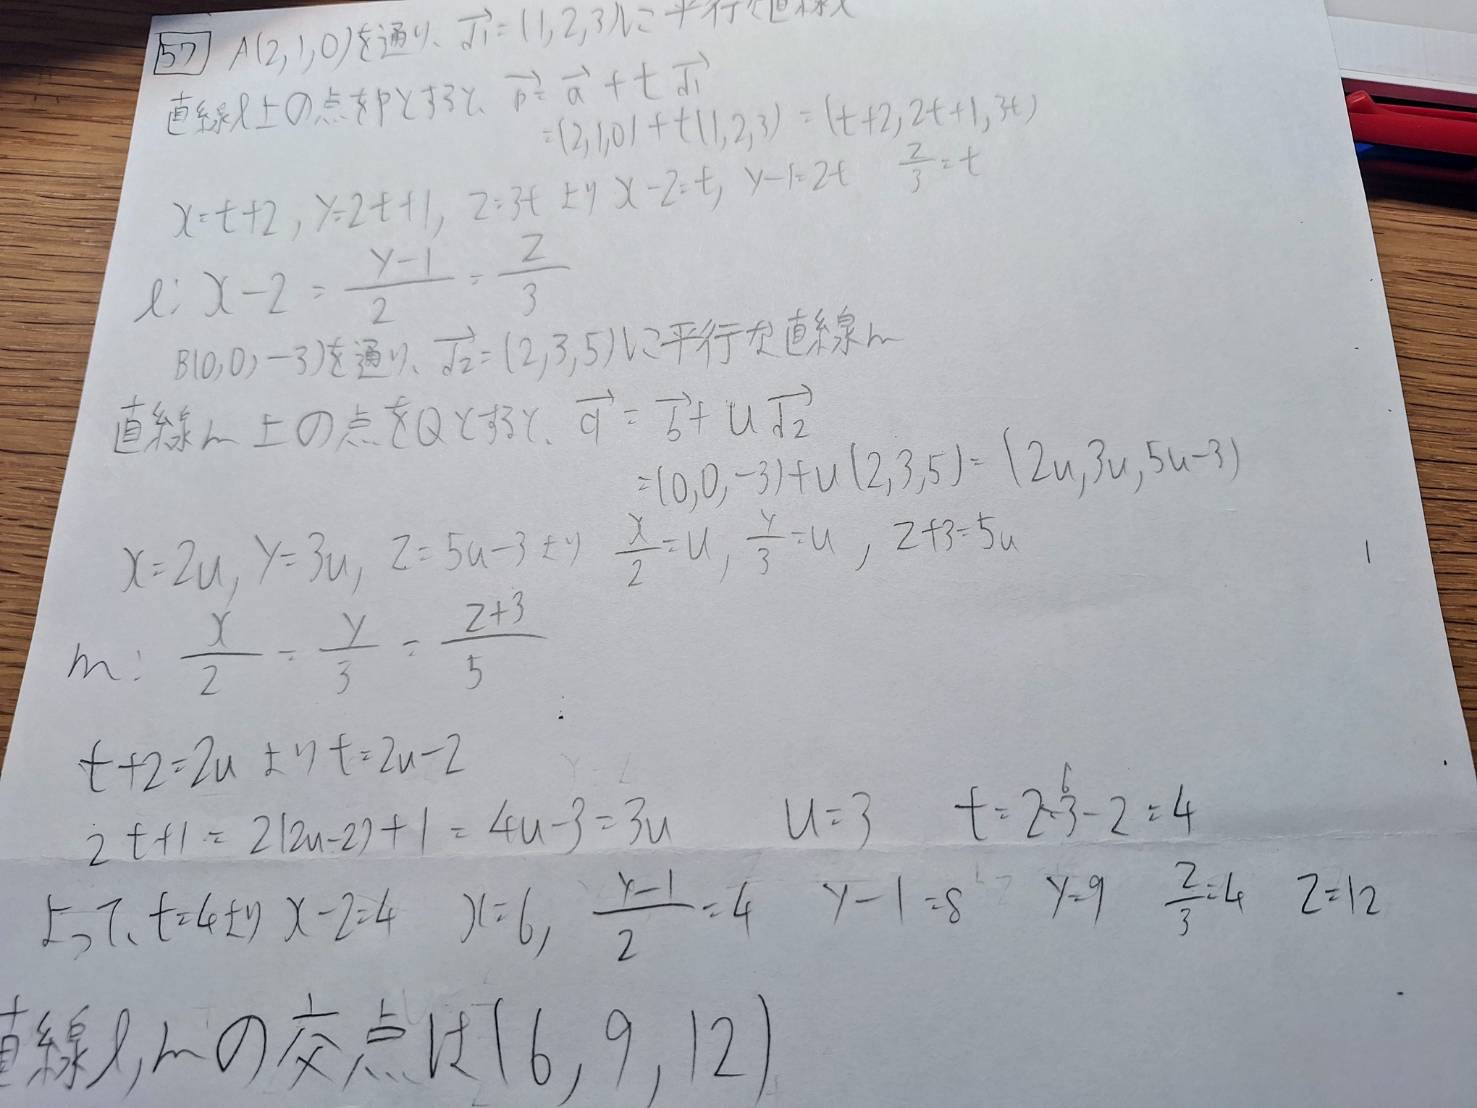 57 A(2,1,0)を通り、d₁→=(1,2,3)に平行な直線l
直線l上の点をPとすると、p→=a→+td₁→
=(2,1,0)+t(1,2,3)=(t+2,2t+1,3t)
x=t+2, y=2t+1, z=3tより x-2=t, y-1=2t z/3=t
l: x-2=(y-1)/2=z/3
B(0,0,-3)を通り、d₂→=(2,3,5)に平行な直線m
直線m上の点をQとすると、q→=b→+ud₂→
=(0,0,-3)+u(2,3,5)=(2u,3u,5u-3)
x=2u, y=3u, z=5u-3より x/2=u, y/3=u, z+3=5u
m: x/2=y/3=(z+3)/5
t+2=2uよりt=2u-2
2t+1=2(2u-2)+1=4u-3=3u u=3 t=2·3-2=4
6
よって、t=4より x-2=4 x=6, (y-1)/2=4 y-1=8 y=9 z/3=4 z=12
直線l,mの交点は(6,9,12)